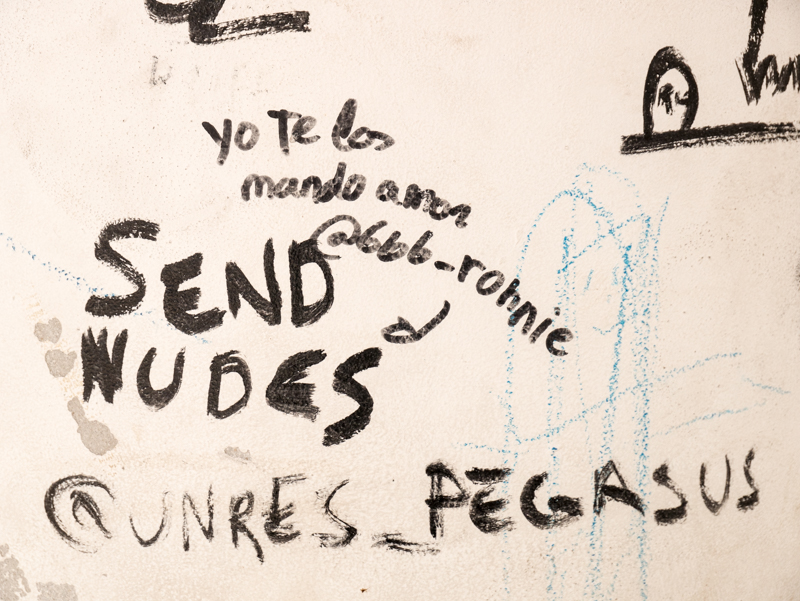 yo Te los
mando amor
@666_rohnie
SEND
NUDES
@UNRES_PEGASUS